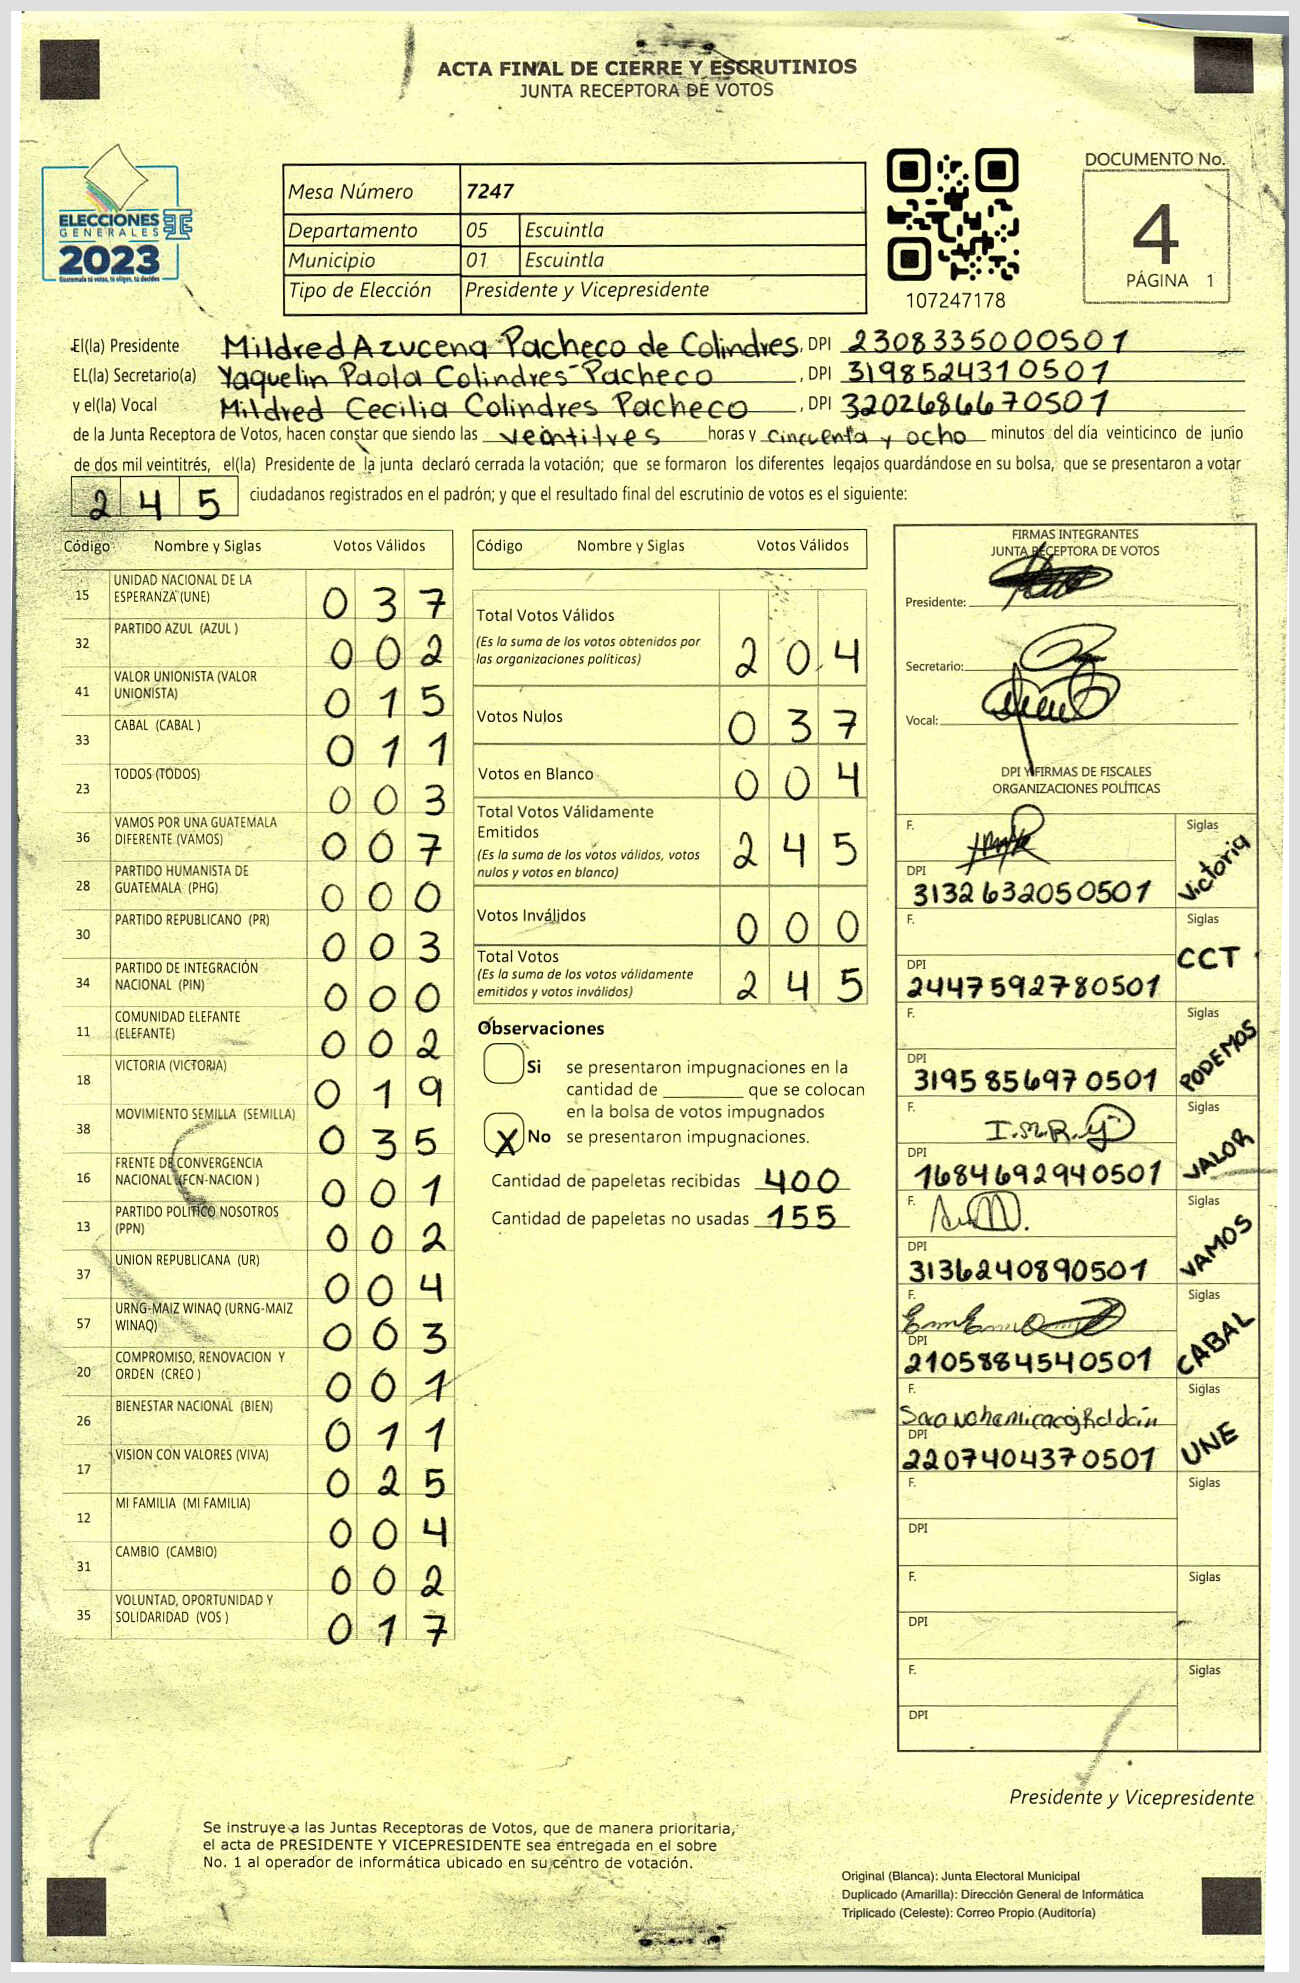 ACTA FINAL DE CIERRE Y ESCRUTINIOS
JUNTA RECEPTORA DE VOTOS
ELECCIONES
GENERALES
2023
Guatemala tú votas, tú eliges, tú decides
Mesa Número 7247
Departamento 05 Escuintla
Municipio 01 Escuintla
Tipo de Elección Presidente y Vicepresidente
107247178
DOCUMENTO No.
4
PÁGINA 1
El(la) Presidente Mildred Azucena Pacheco de Colindres, DPI 2308335000501
EL(la) Secretario(a) Yaquelin Paola Colindres Pacheco, DPI 3198524310501
y el(la) Vocal Mildred Cecilia Colindres Pacheco, DPI 3202686670501
de la Junta Receptora de Votos, hacen constar que siendo las veintitres horas y cincuenta y ocho minutos del día veinticinco de junio
de dos mil veintitrés, el(la) Presidente de la junta declaró cerrada la votación; que se formaron los diferentes legajos guardándose en su bolsa, que se presentaron a votar
245 ciudadanos registrados en el padrón; y que el resultado final del escrutinio de votos es el siguiente:
Código Nombre y Siglas Votos Válidos
15 UNIDAD NACIONAL DE LA ESPERANZA (UNE) 037
32 PARTIDO AZUL (AZUL ) 002
41 VALOR UNIONISTA (VALOR UNIONISTA) 015
33 CABAL (CABAL ) 011
23 TODOS (TODOS) 003
36 VAMOS POR UNA GUATEMALA DIFERENTE (VAMOS) 007
28 PARTIDO HUMANISTA DE GUATEMALA (PHG) 000
30 PARTIDO REPUBLICANO (PR) 003
34 PARTIDO DE INTEGRACIÓN NACIONAL (PIN) 000
11 COMUNIDAD ELEFANTE (ELEFANTE) 002
18 VICTORIA (VICTORIA) 019
38 MOVIMIENTO SEMILLA (SEMILLA) 035
16 FRENTE DE CONVERGENCIA NACIONAL (FCN-NACION ) 001
13 PARTIDO POLITICO NOSOTROS (PPN) 002
37 UNION REPUBLICANA (UR) 004
57 URNG-MAIZ WINAQ (URNG-MAIZ WINAQ) 003
20 COMPROMISO, RENOVACION Y ORDEN (CREO ) 001
26 BIENESTAR NACIONAL (BIEN) 011
17 VISION CON VALORES (VIVA) 025
12 MI FAMILIA (MI FAMILIA) 004
31 CAMBIO (CAMBIO) 002
35 VOLUNTAD, OPORTUNIDAD Y SOLIDARIDAD (VOS ) 017
Código Nombre y Siglas Votos Válidos
Total Votos Válidos 204
(Es la suma de los votos obtenidos por
las organizaciones políticas)
Votos Nulos 037
Votos en Blanco 004
Total Votos Válidamente
Emitidos 245
(Es la suma de los votos válidos, votos
nulos y votos en blanco)
Votos Inválidos 000
Total Votos 245
(Es la suma de los votos válidamente
emitidos y votos inválidos)
Observaciones
Si se presentaron impugnaciones en la
cantidad de ________ que se colocan
en la bolsa de votos impugnados
X No se presentaron impugnaciones.
Cantidad de papeletas recibidas 400
Cantidad de papeletas no usadas 155
FIRMAS INTEGRANTES
JUNTA RECEPTORA DE VOTOS
Presidente:
Secretario:
Vocal:
DPI Y FIRMAS DE FISCALES
ORGANIZACIONES POLÍTICAS
F. Siglas Victoria
DPI 3132632050501
F. Siglas CCT
DPI 2447592780501
F. Siglas PODEMOS
DPI 3195856970501
F. I.M.R. Siglas VALOR
DPI 1684692940501
F. Siglas VAMOS
DPI 3136240890501
F. Siglas CABAL
DPI 2105884540501
F. Siglas UNE
DPI 2207404370501
F. Siglas
DPI
F. Siglas
DPI
F. Siglas
DPI
Presidente y Vicepresidente
Se instruye a las Juntas Receptoras de Votos, que de manera prioritaria,
el acta de PRESIDENTE Y VICEPRESIDENTE sea entregada en el sobre
No. 1 al operador de informática ubicado en su centro de votación.
Original (Blanca): Junta Electoral Municipal
Duplicado (Amarilla): Dirección General de Informática
Triplicado (Celeste): Correo Propio (Auditoría)